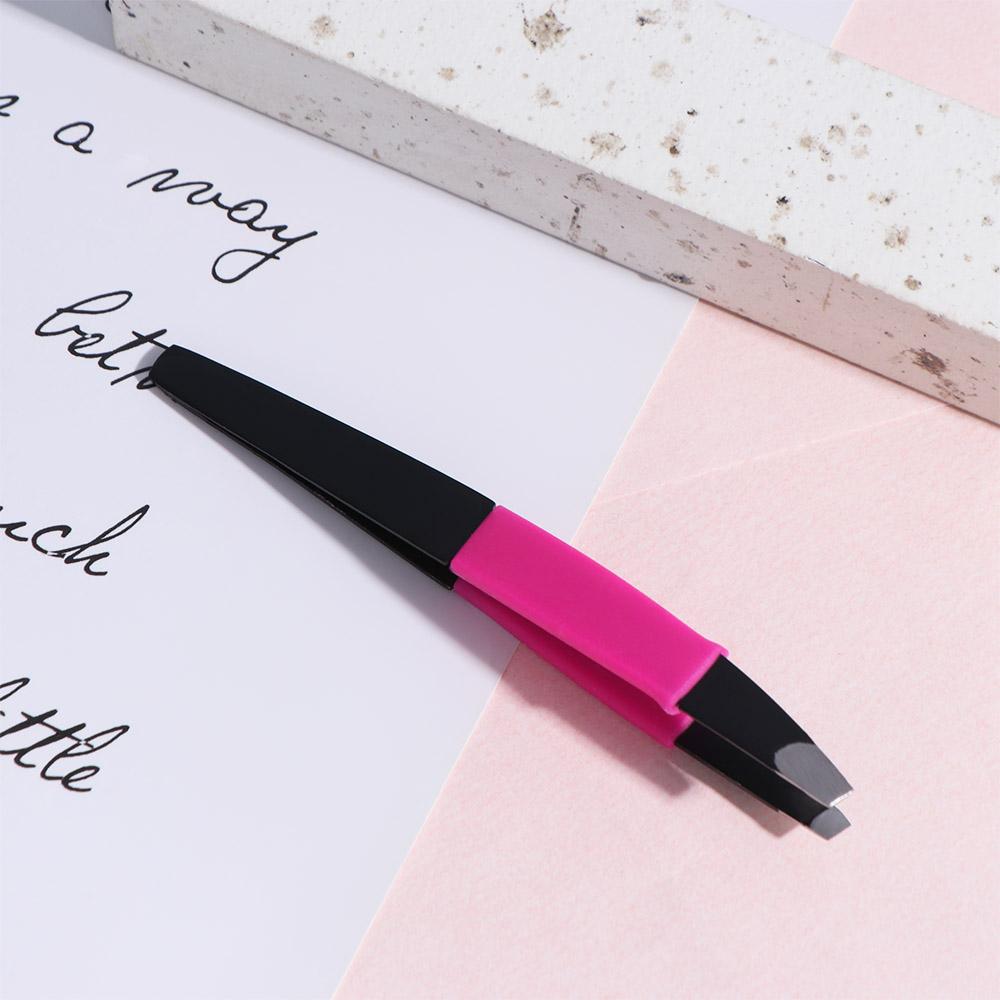 a way
bet
uch
ittle